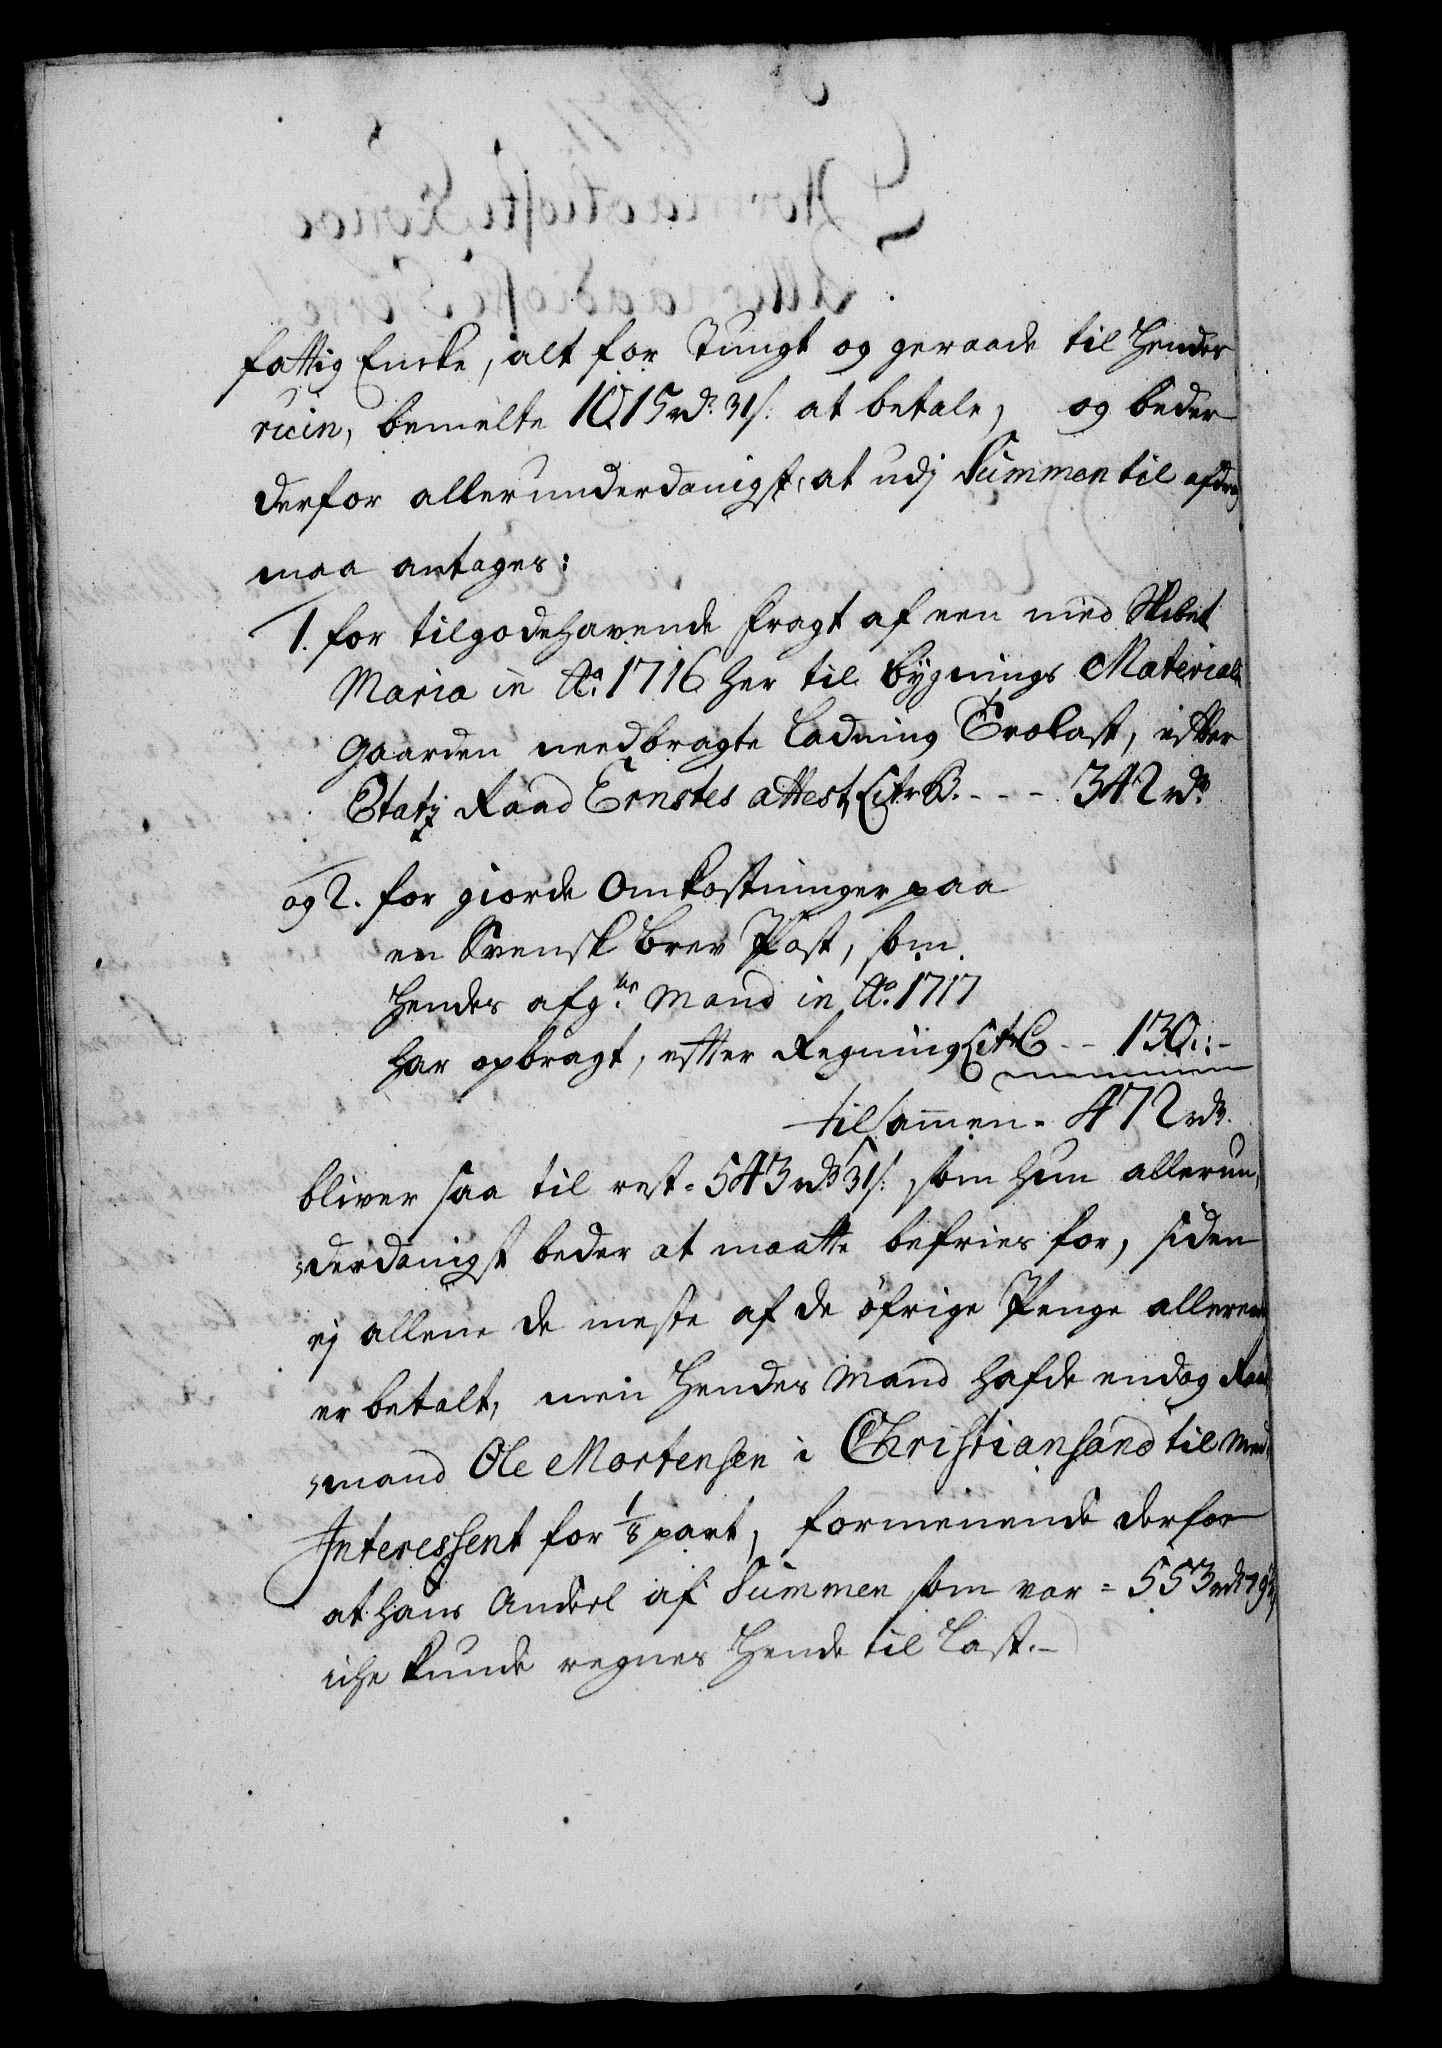 fattig Encke, alt for Tungt og geraade til Hendes
ruin, bemelte 1015 rd. 31 s: at betale, og beder
derfor allerunderdanigst, at udj Summen til afdrag
maa antages:
1. for tilgodehavende fragt af een med Skibet
Maria in Ao. 1716 her til Bygnings Material
Gaarden needbragte Ladning Trælast, efter
Etatz Raad Ernstes attest, Litr B. - - - 342 rd.
og 2. for giorde Omkostninger paa
en Svensk brev Post, som
Hendes afg: Mand in Ao. 1717
har opbragt, efter Regning Litr C - - 130 :: -
tilsamen - 472 rd.
bliver saa til rest - 543 rd. 31 s: som hun allerun-
derdanigst beder at maatte befries for, siden
ej allene de meste af de öfrige Penge allereede
er betalt, men Hendes Mand hafde endog Raad
mand Ole Mortensen i Christiansand til Med
Interessent for 1/8 part, formenende derfor
at hans Andeel af Summen som var = 553 rd.
iche kunde regnes Hende til Last. -